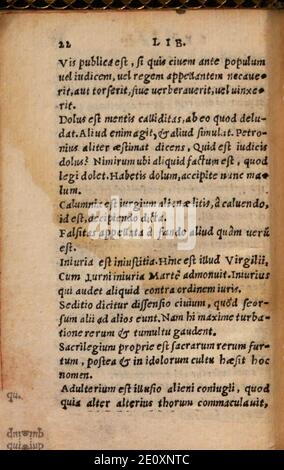 22 LIB.
Vis publica est, si quis ciuem ante populum
uel iudicem, uel regem appellantem necaue-
rit, aut torserit, siue uerberauerit, uel uinxe-
rit.
Dolus est mentis calliditas, ab eo quod delu-
dat. Aliud enim agit, & aliud simulat. Petro-
nius aliter æstimat dicens, Quid est iudicis
dolus? Nimirum ubi aliquid factum est, quod
legi dolet. Habetis dolum, accipite nunc ma-
lum.
Calumnia est iurgium alienæ litis, à caluendo,
id est, decipiendo dicta.
Falsitas appellata à fando aliud quàm verū
est.
Iniuria est iniustitia. Hinc est illud Virgilij,
Cum Turni iniuria Martē admonuit. Iniurius
qui audet aliquid contra ordinem iuris.
Seditio dicitur dissensio ciuium, quòd seor-
sum alij ad alios eunt. Nam hi maxime turba-
tione rerum & tumultu gaudent.
Sacrilegium proprie est sacrarum rerum fur-
tum, postea & in idolorum cultu hæsit hoc
nomen.
Adulterium est illusio alieni coniugij, quod
quia alter alterius thorum commaculauit,
qu.
alamy
Image ID: 2E0XNTC
www.alamy.com